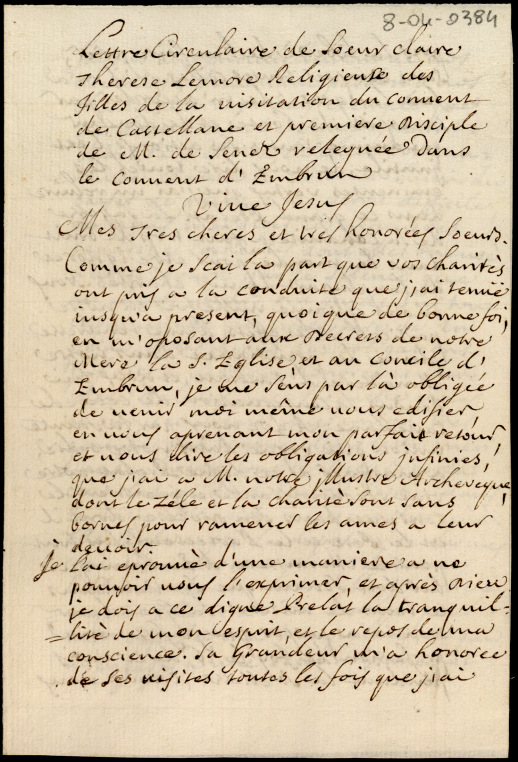 8-04-0384
Lettre Circulaire de Soeur claire
Therese Lemore Religieuse des
filles de la visitation du couuent
de Castellane et premiere Disciple
de M. de Senez releguée Dans
le couuent d'Embrun
Viue Jesus
Mes tres cheres et tres honorées Soeurs.
Comme je scai la part que vos charités
ont pris a la conduite que j'ai tenuë
iusqu'a present, quoique de bonne foi,
en m'oposant aux Decrets de notre
Mere la S. Eglise, et au concile d'
Embrun, je me sens par là obligée
de uenir moi même uous edifier,
en uous aprenant mon parfait retour,
et uous dire les obligations infinies,
que j'ai a M. notre illustre Archeueque,
dont le zéle et la charité sont sans
bornes pour ramener les ames a leur
deuoir.
Je l'ai eprouué d'une maniere a ne
pouuoir uous l'exprimer, et après Dieu
je dois a ce digne Prelat la tranquil-
=lité de mon esprit, et le repos de ma
conscience. Sa Grandeur m'a honorée
de ses uisites toutes les fois que j'ai